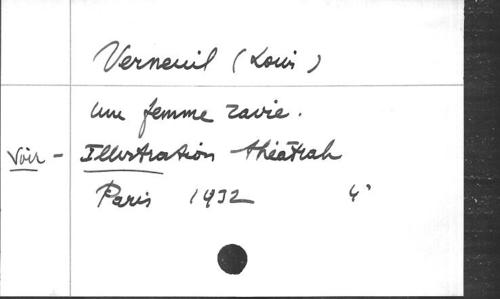 Verneuil (Louis)
Une femme ravie.
Voir - Illustration théâtrale
Paris 1932 4°